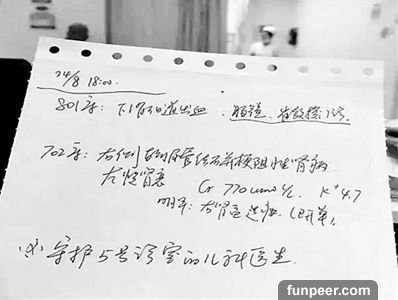 24/8 18:00.
801床: 下消化道出血. 肠镜.
702床: 右侧输尿管结石并梗阻性肾病
左慢肾衰
Cr 770 umol/L. K⁺ 4.7
明早: 右肾造
(4) 守护5号诊室的儿科医生.
funpeer.com